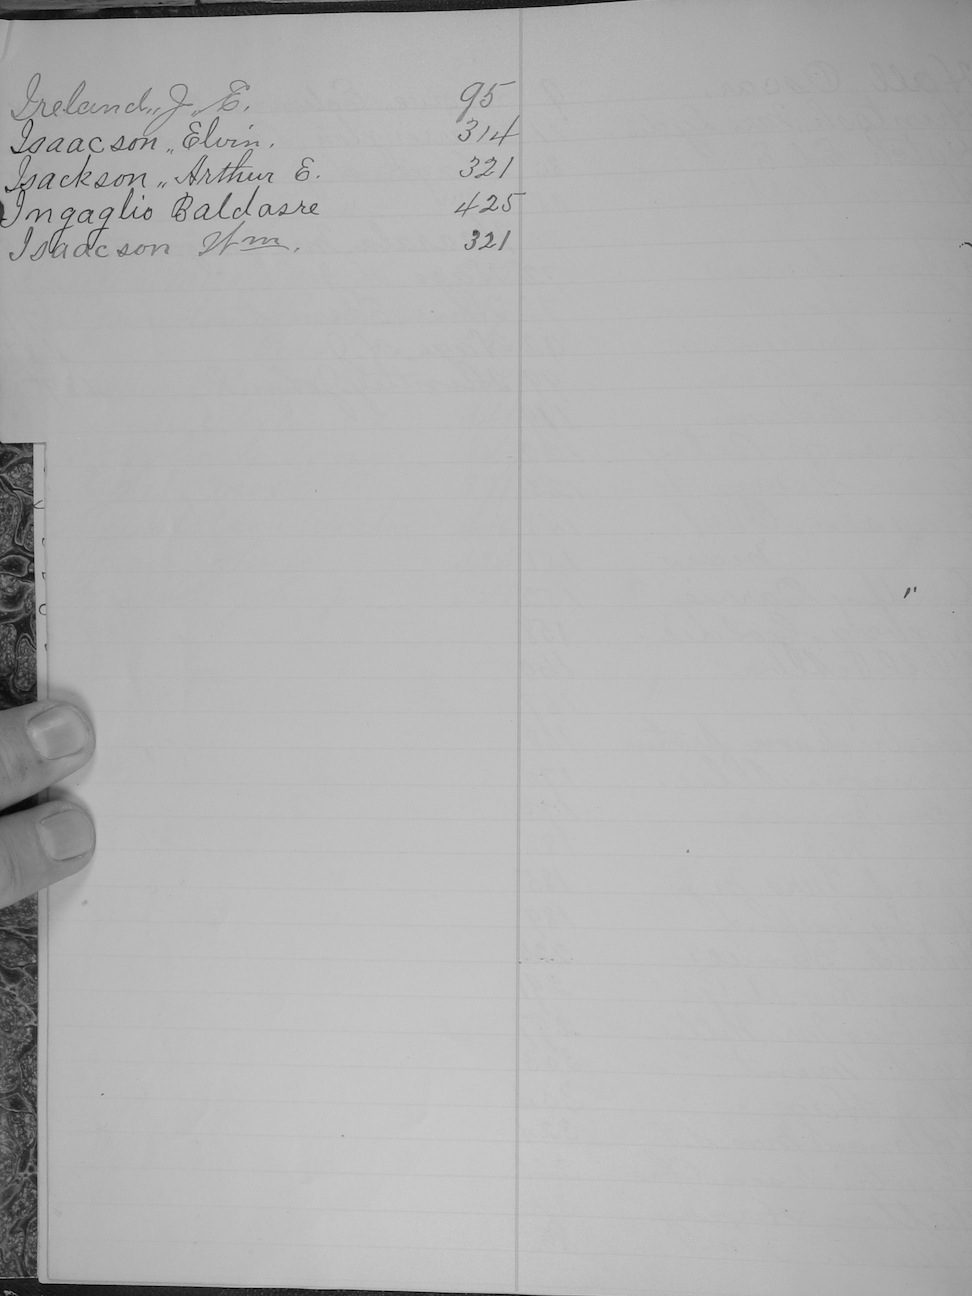 Ireland,, J. E. 95
Isaacson,, Elvin. 314
Isackson,, Arthur E. 321
Ingaglio Baldasre 425
Isaacson Wm. 321